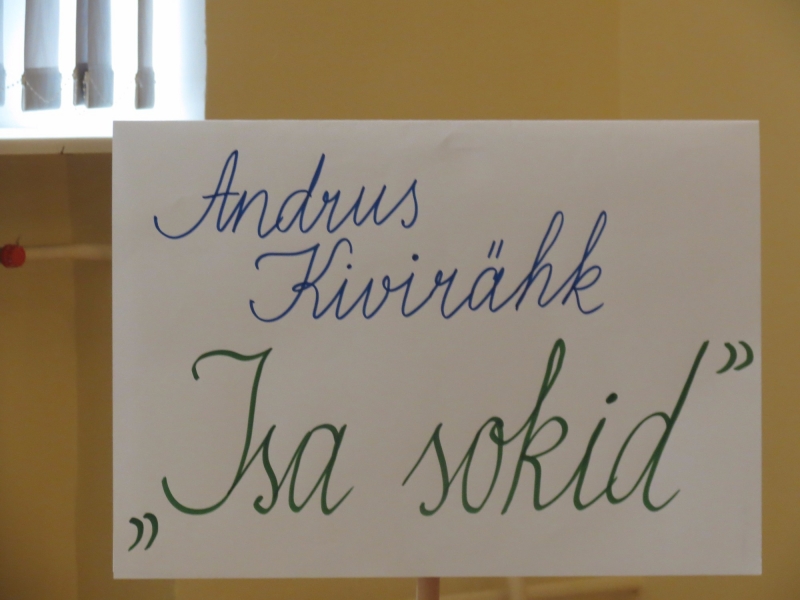 Andrus
Kivirähk
„Isa sokid”